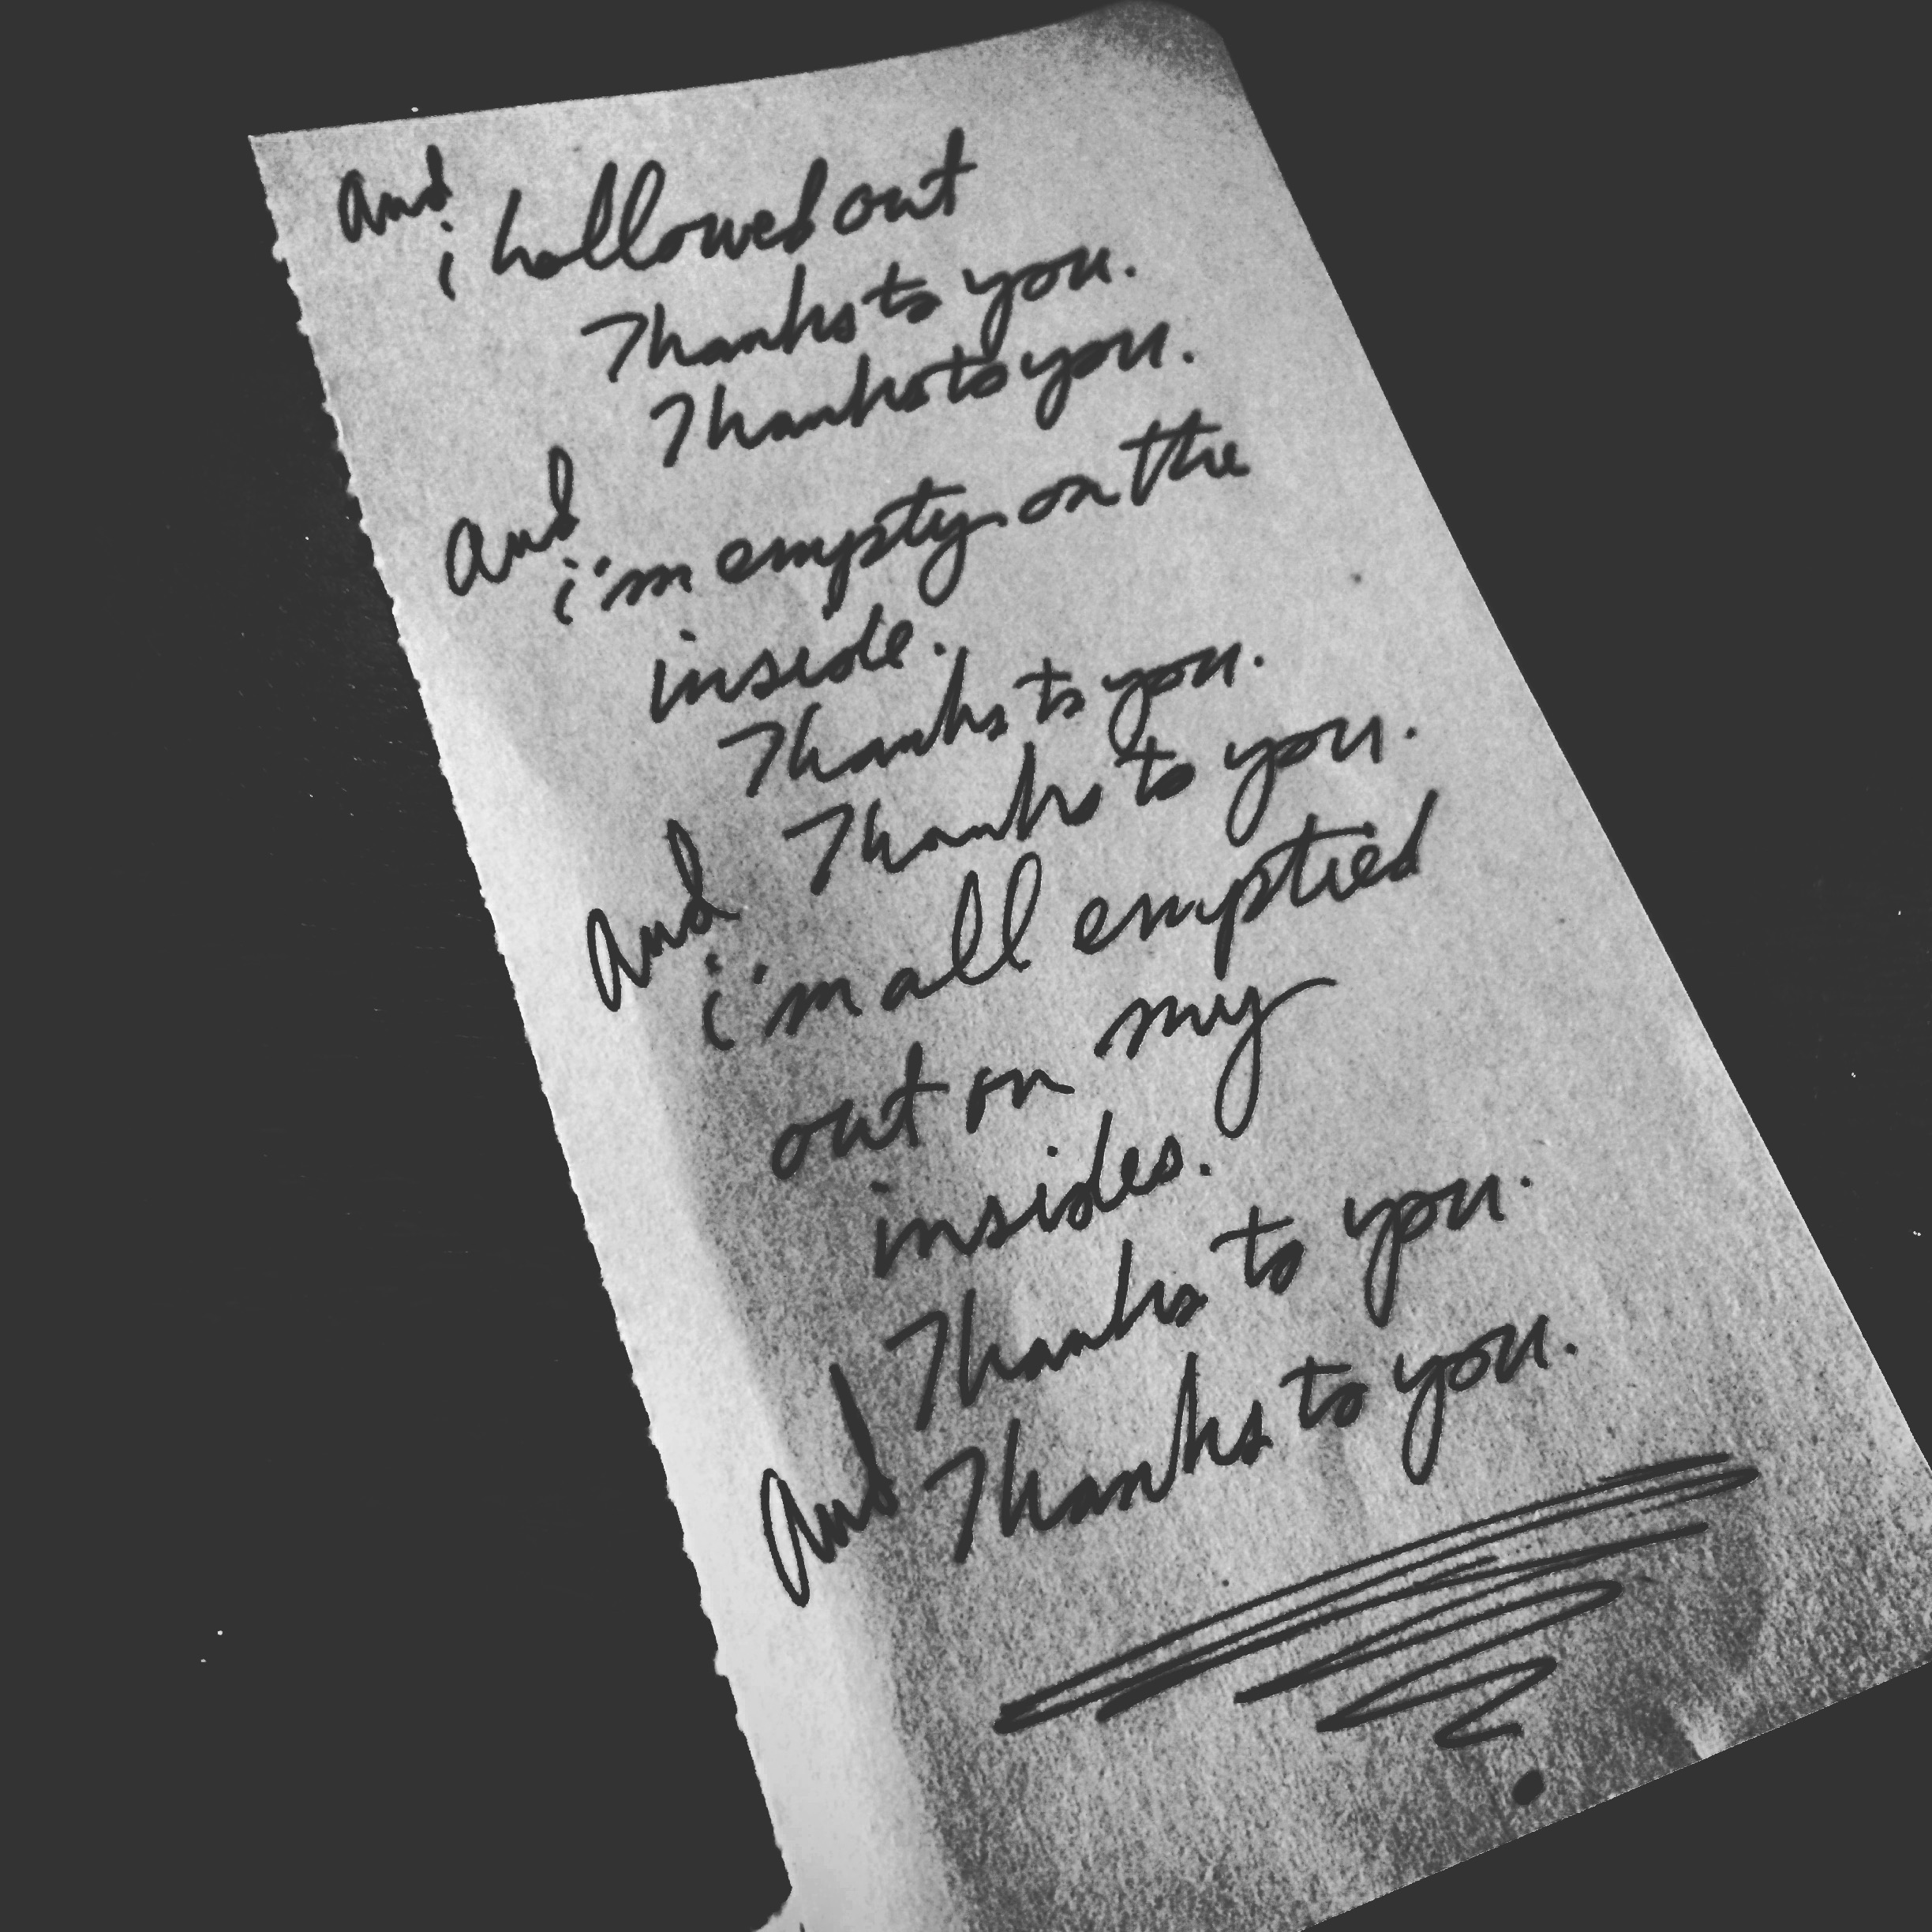 and
i hollowed out
Thanks to you.
Thanks to you.
and
i'm empty on the
inside.
Thanks to you.
Thanks to you.
and
i'm all emptied
out on my
insides.
Thanks to you.
and Thanks to you.